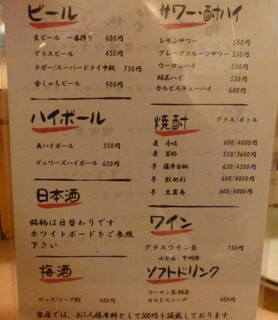 ビール
生ビール 一番搾り 600円
グラスビール 450円
ラガー/スーパードライ中瓶 750円
金しゃちビール 900円
ハイボール
角ハイボール 550円
デュワーズハイボール 650円
日本酒
銘柄は日替わりです
ホワイトボードをご参照
下さい
梅酒
ロック/ソーダ割
サワー・酎ハイ
レモンサワー 550円
グレープフルーツサワー 550円
ウーロンハイ
緑茶ハイ 550円
カルピスチューハイ 600円
焼酎 グラス/ボトル
麦 壱岐 600/4000円
麦 550/3600円
芋 600/4500円
芋 600/4500円
芋 黒霧島 600/4000円
ワイン
グラスワイン白 750円
ソフトドリンク
ウーロン茶/緑茶
カルピスソーダ
当店では、お1人様席料として500円を頂戴しております